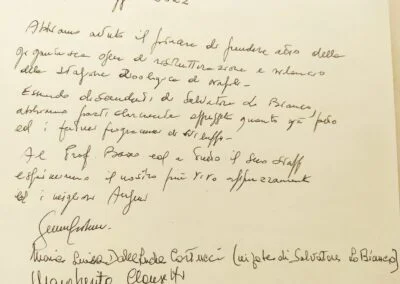 Abbiamo avuto il piacere di prendere atto della
gigantesca opera di ristrutturazione e rilancio
della Stazione Zoologica di Napoli.
Essendo discendenti di Salvatore Lo Bianco,
abbiamo particolarmente apprezzato quanto già fatto
ed i futuri programmi di sviluppo.
Al Prof. ed a tutto il Suo Staff
esprimiamo il nostro più vivo apprezzamento
ed i migliori Auguri
Maria Luisa Cortucci (nipote di Salvatore Lo Bianco)
Margherita